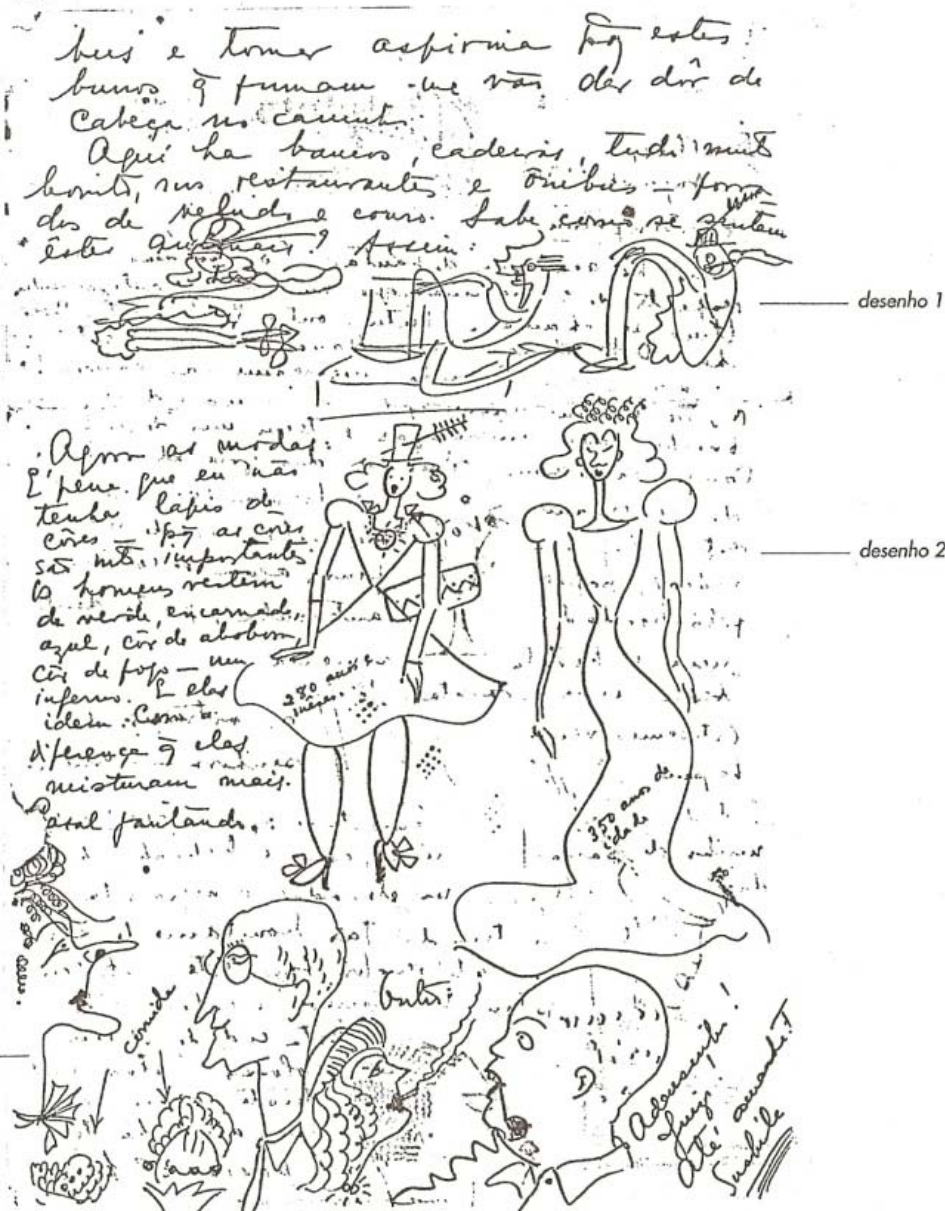 bus e tomar aspirina pq estes
burros q̃ fumam me vão dar dôr de
cabeça no caminho
Aqui ha bancos, cadeiras, tudo muito
bonito, nos restaurantes e ônibus — forra
dos de veludo e couro. Sabe como se sentam
êstes animais? Assim:
desenho 1
Agora as modas:
É pena que eu não
tenha lápis de
côres pq as côres
são mto. importantes
Os homens vestem
de verde, encarnado,
azul, côr de abobora,
côr de fogo — um
inferno. E elas
idem. Com a
diferença q̃ elas
misturam mais.
Casal jantando.
280 anos
desenho 2
350 anos de
idade
comida
Outro:
Adeusinho!
Luiz
Até amanhã